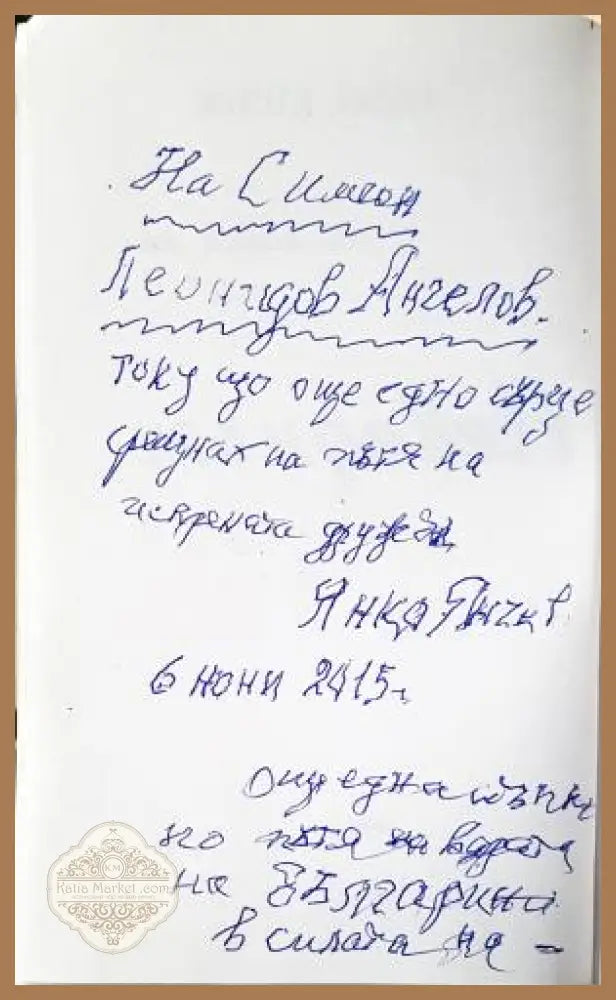 На Симеон
Леонидов Ангелов.
току що още едно сърце
срещнах на пътя на
искрената дружба
Янко Янчев
6 юни 2015 г.
Още една стъпка
по пътя на вярата
на българина
в силата на –
KM
Katia Market .com